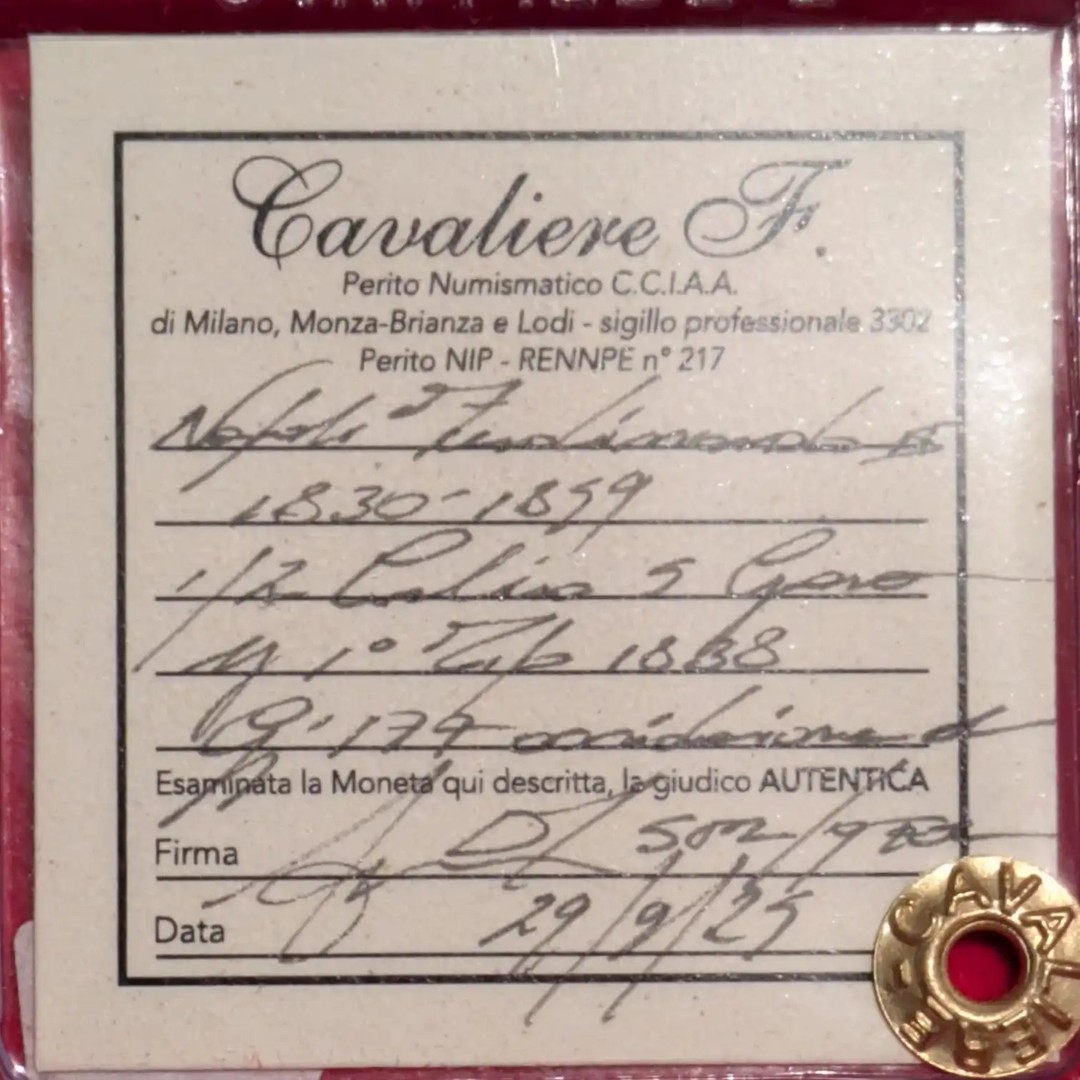 Cavaliere F.
Perito Numismatico C.C.I.A.A.
di Milano, Monza-Brianza e Lodi - sigillo professionale 3302
Perito NIP - RENNPE n° 217
Napoli Ferdinando II
1830-1859
1/2
1° Tipo 1838
G. 177
Esaminata la Moneta qui descritta, la giudico AUTENTICA
Firma
Data 29/9/25
CAVALIERE